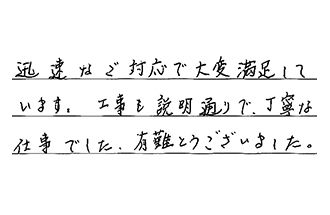 迅速なご対応で大変満足して
います。工事も説明通りで、丁寧な
仕事でした、有難とうございました。